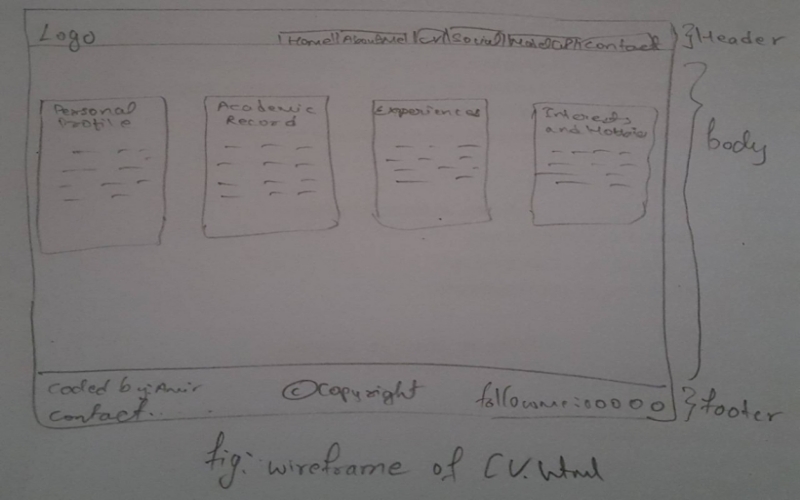 Logo
Home About Me CV Social contact
}Header
Personal
Profile
Academic
Record
Experiences
Interests
and Hobbies
body
coded by: Amir
contact..
©Copyright
follow me: 00000
}footer
fig: wireframe of CV.html